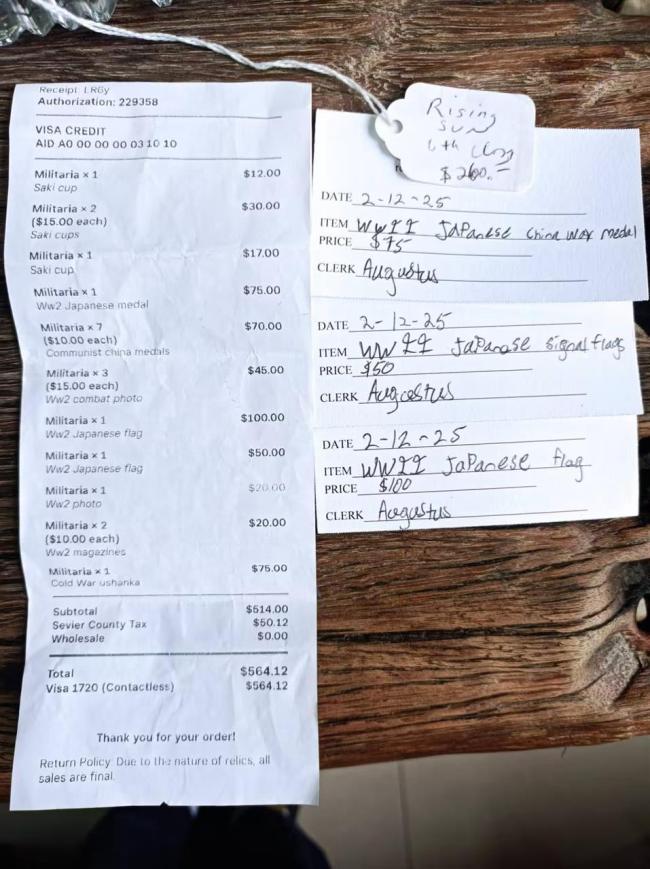 Receipt: LR6y
Authorization: 229358
VISA CREDIT
AID A0 00 00 00 03 10 10
Militaria x 1 $12.00
Saki cup
Militaria x 2 $30.00
($15.00 each)
Saki cups
Militaria x 1 $17.00
Saki cup
Militaria x 1 $75.00
Ww2 Japanese medal
Militaria x 7 $70.00
($10.00 each)
Communist china medals
Militaria x 3 $45.00
($15.00 each)
Ww2 combat photo
Militaria x 1 $100.00
Ww2 Japanese flag
Militaria x 1 $50.00
Ww2 Japanese flag
Militaria x 1 $20.00
Ww2 photo
Militaria x 2 $20.00
($10.00 each)
Ww2 magazines
Militaria x 1 $75.00
Cold War ushanka
Subtotal $514.00
Sevier County Tax $50.12
Wholesale $0.00
Total $564.12
Visa 1720 (Contactless) $564.12
Thank you for your order!
Return Policy: Due to the nature of relics, all
sales are final.
Rising
Sun
6th
$260.–
DATE 2-12-25
ITEM WWII JaPanese China War medal
PRICE $75
CLERK Augustus
DATE 2-12-25
ITEM WWII JaPanase signal flags
PRICE $50
CLERK Augustus
DATE 2-12-25
ITEM WWII JaPanese flag
PRICE $100
CLERK Augustus